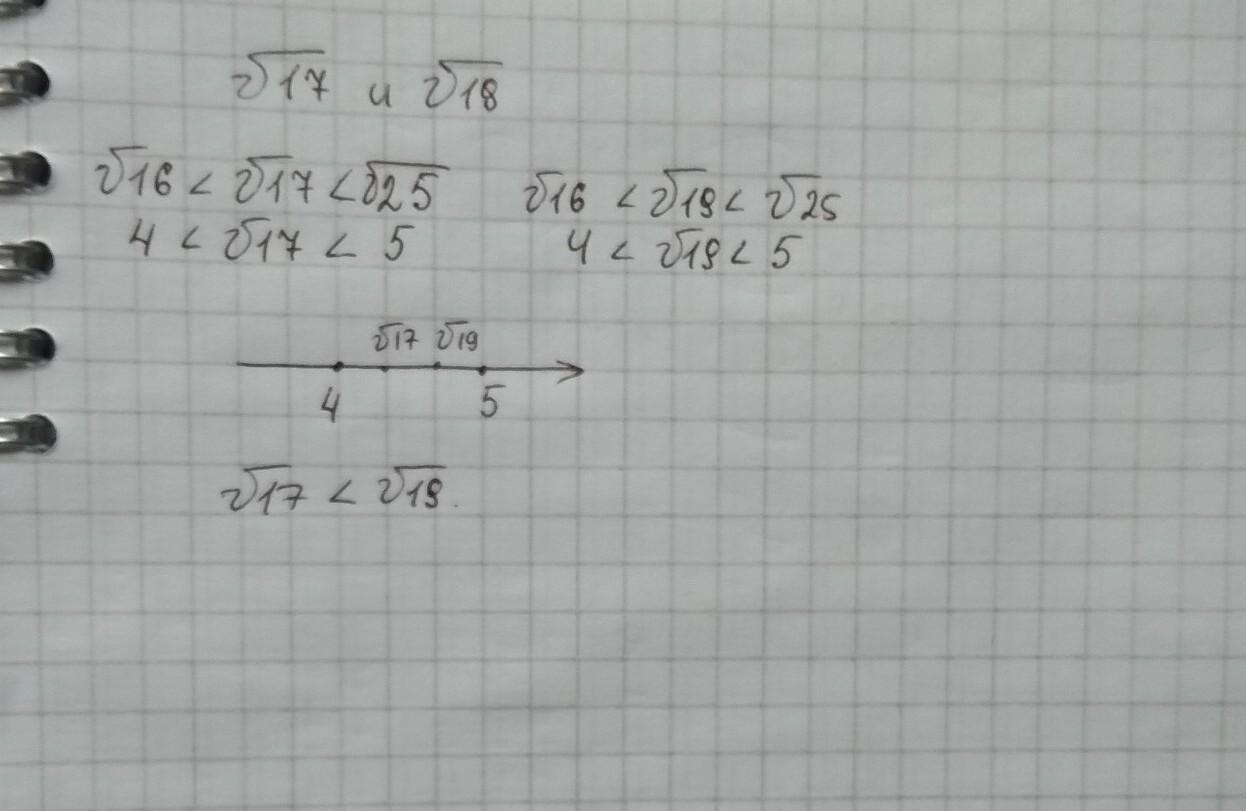 √17 и √18
√16 < √17 < √25 √16 < √19 < √25
4 < √17 < 5 4 < √19 < 5
√17 √19
4 5
√17 < √19.